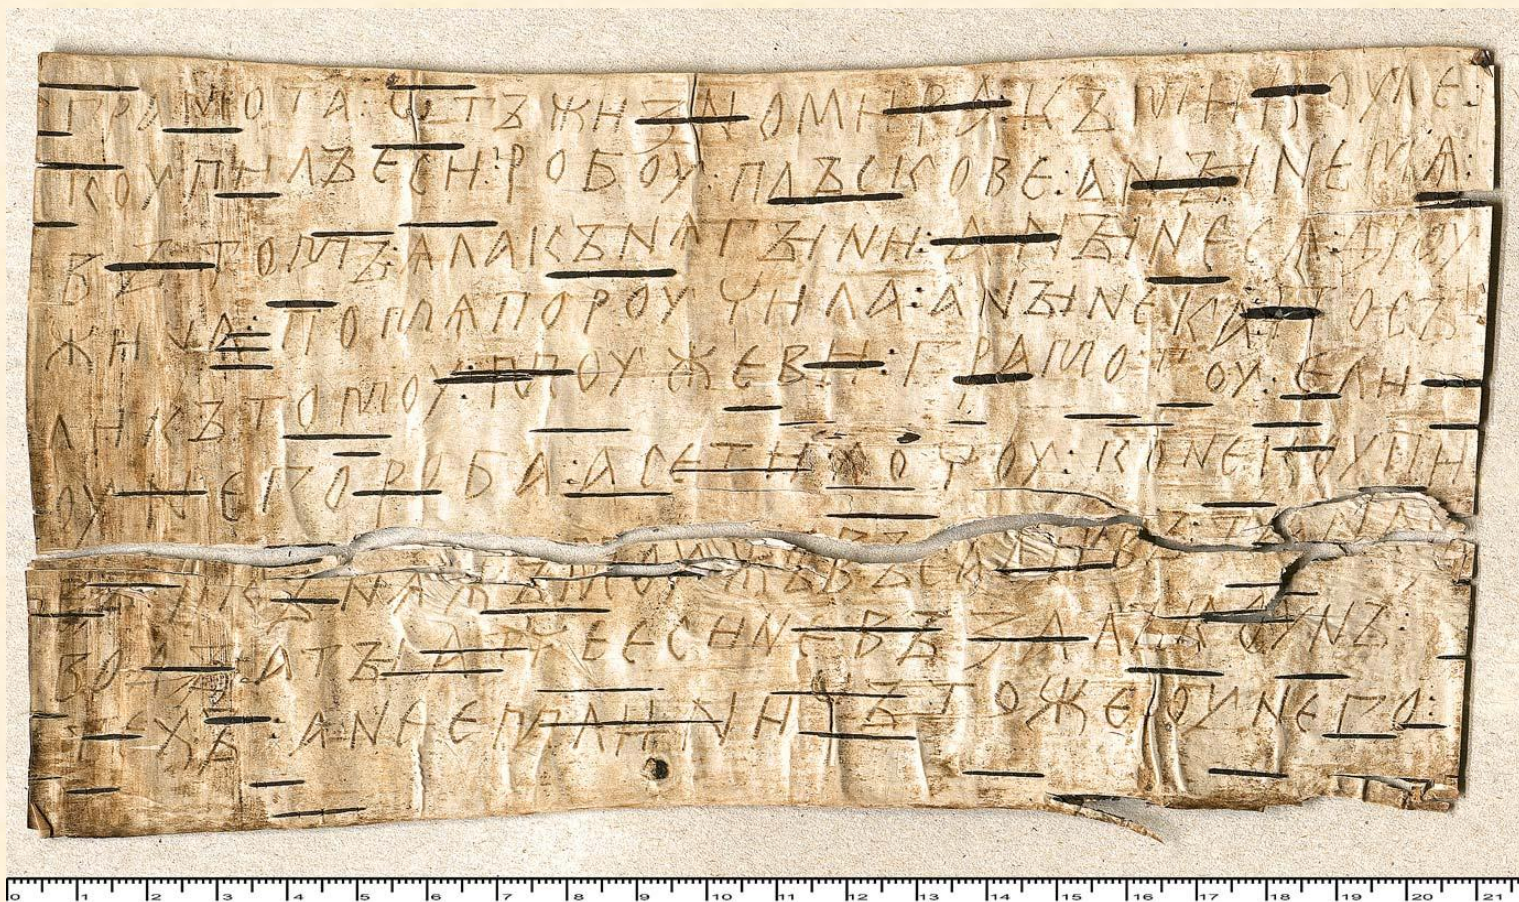 грамота : ѿтъ жизномира : къ микоуле :
коупилъ еси : робоу : плъскове : а нъıне мѧ :
въ томъ : ѧла кънѧгъıни : а нъıне сѧ дроу
жина : по мѧ пороучила : а нъıне ка посъ
ли къ томоу : моужеви : грамотоу : е ли
оу него роба : а се ти хочоу : коне коупи
въ : и кънѧжъ моужъ въсадивъ : та на съ
водъı : а тъı атче еси не възалъ коунъ
техъ : а не емли : ничъто же оу него :
0 1 2 3 4 5 6 7 8 9 10 11 12 13 14 15 16 17 18 19 20 21